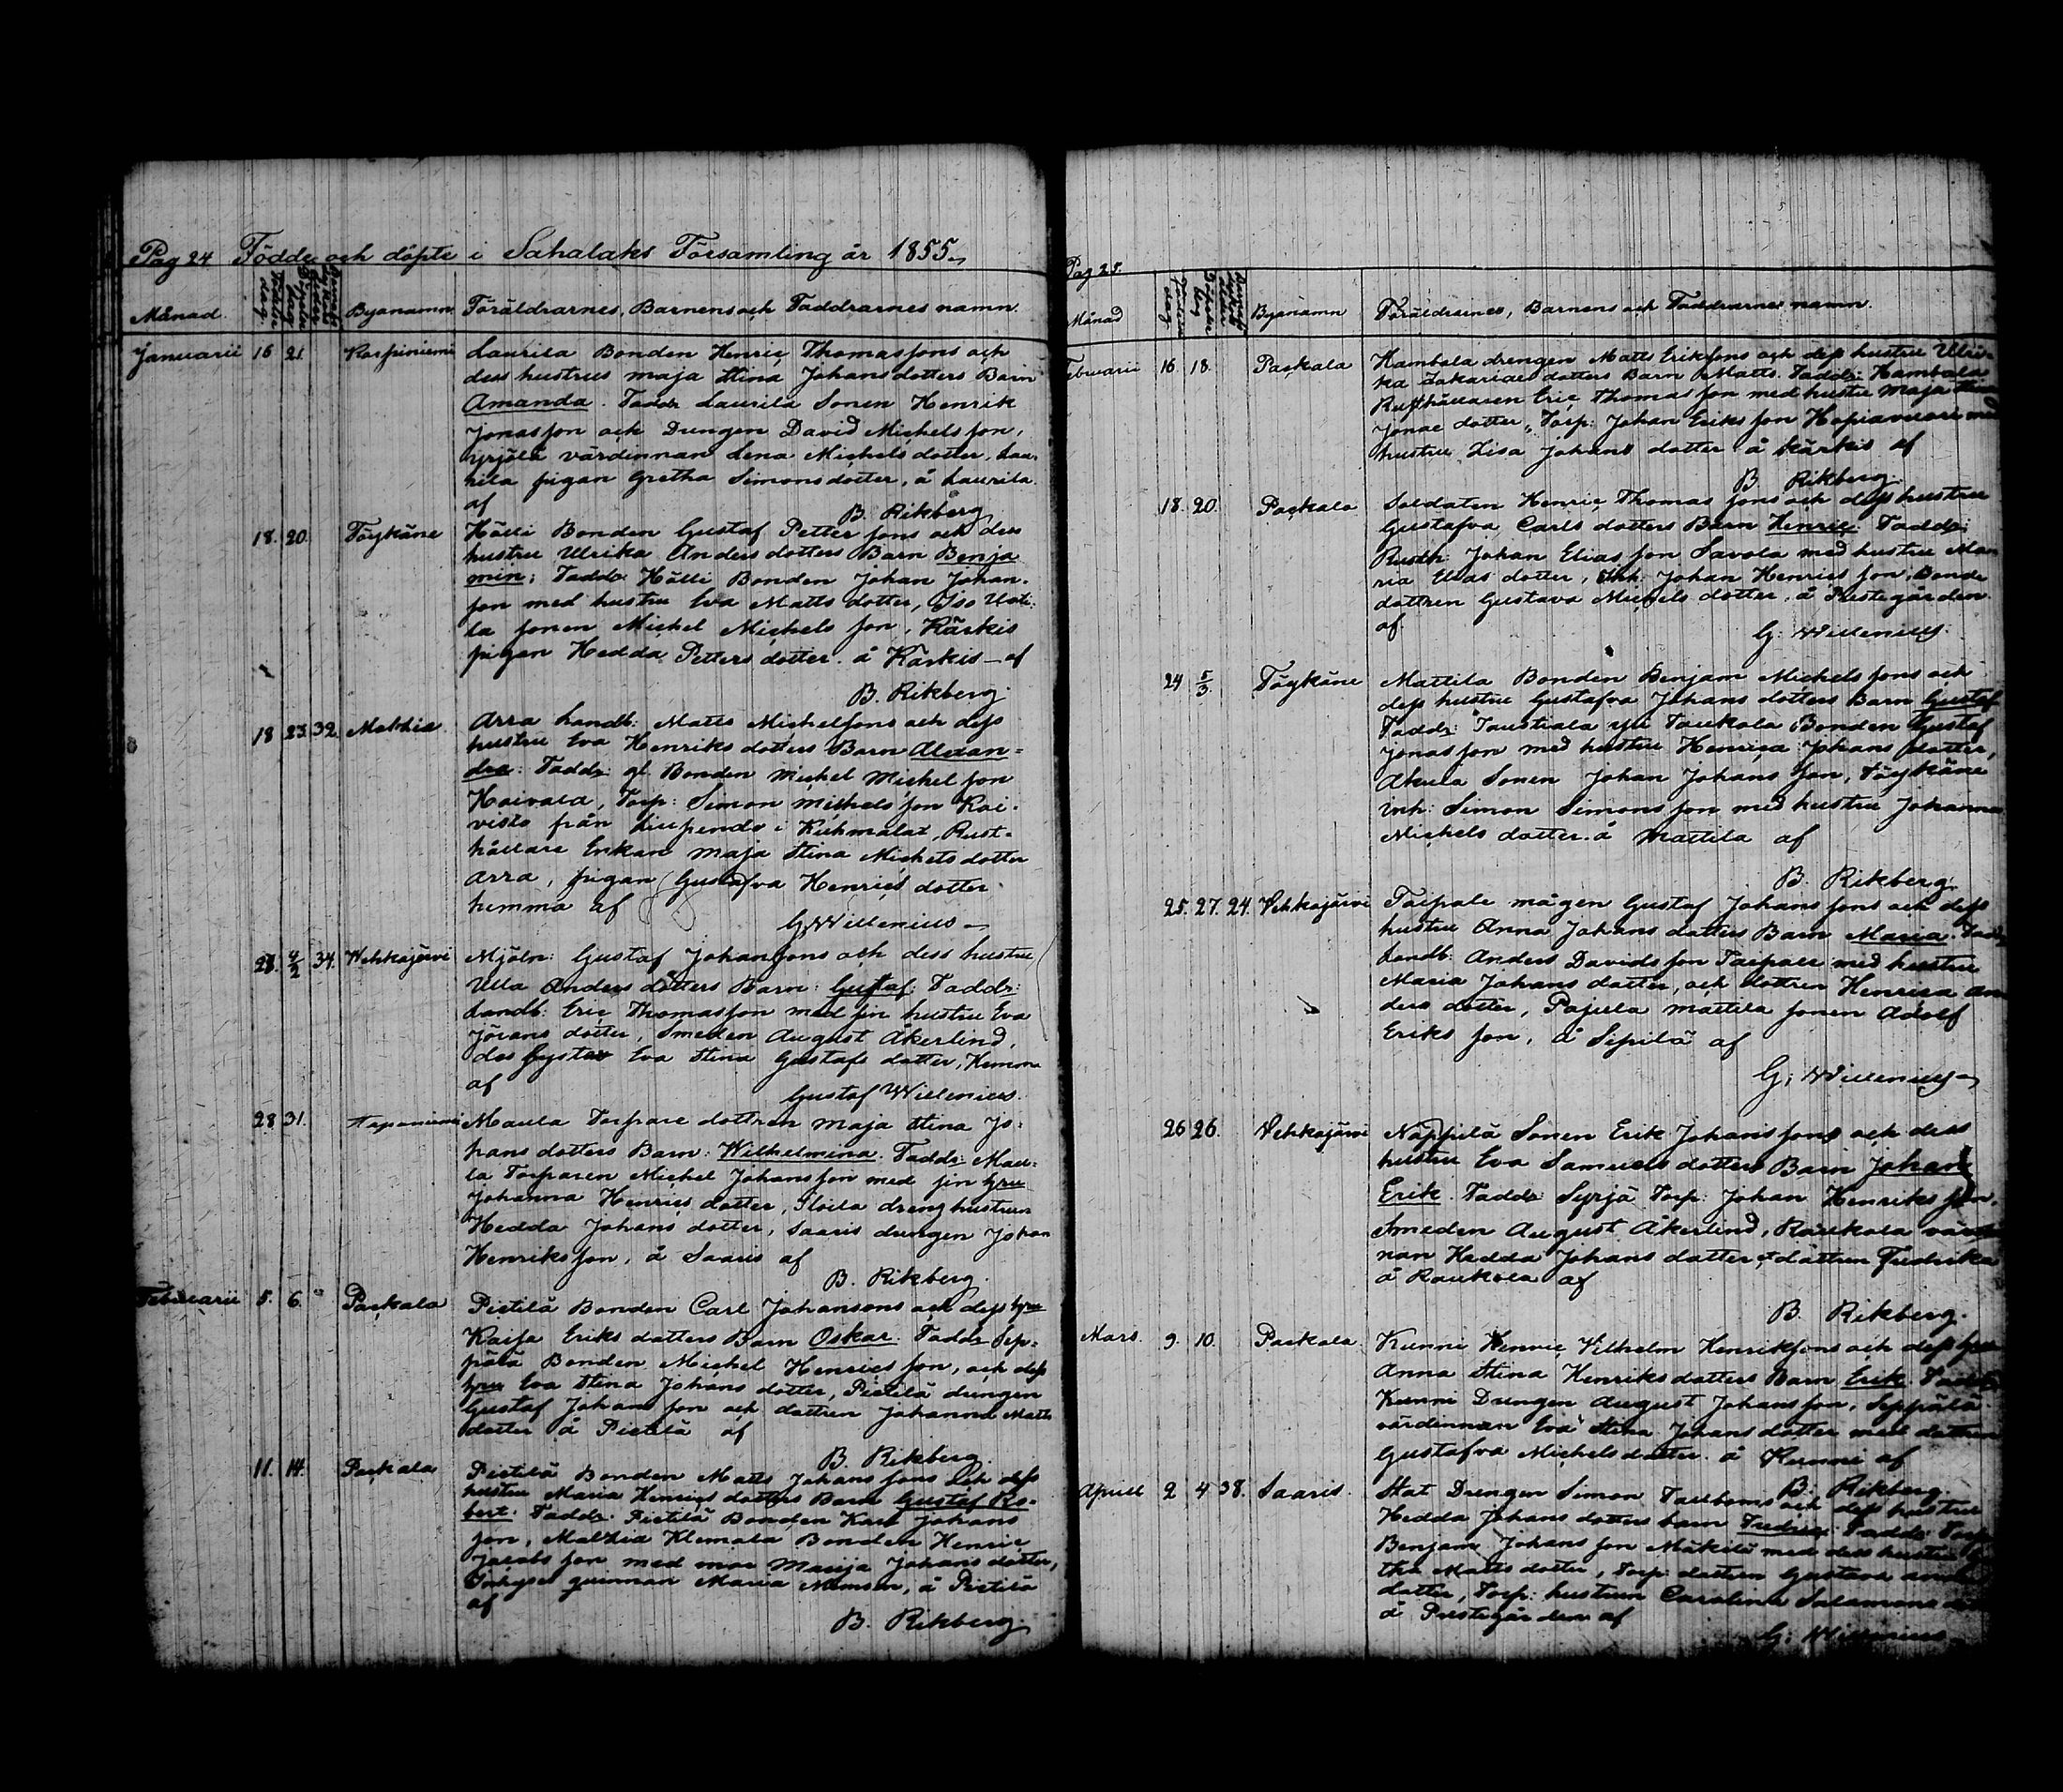 Pag 24 Födde och döpte i Sahalaks Församling år 1855.
Månad. Byanamn Föräldrarnes, Barnens och Faddrarnes namn.
Januarii 16 21. Karpiniemi Laurila Bonden Henric Thomasons och
dess hustrus Maja Stina Johansdotters Barn
Amanda. Faddr. Laurila Sonen Henrik
Jonasson och Drengen David Michelsson,
Yrjölä värdinnan Lena Michelsdotter, Lau-
rila pigan Gretha Simonsdotter, å Laurila
af B. Rikberg
18. 20. Töykäne Hölli Bonden Gustaf Petter sons och dess
hustru Ulrika Anders dotters Barn Benja
min; Faddr. Hölli Bonden Johan Johan-
son med hustru Eva Matts dotter, Iso
la sonen Michel Michels son, Kärkis
pigan Hedda Petters dotter. å Kärkis – af
B. Rikberg.
18 23. 32. Mathia Arra Landb: Matts Michelsons och dess
hustru Eva Henriks dotters Barn Alexan-
dra. Faddr. gl. Bonden Michel Michel son
Hoivala, Torp: Simon Michels son Koi-
visto från Liupendo i Kuhmalax, Rust-
hållare Enkan Maja Stina Michels dotter
Arra, pigan Gustafva Henrics dotter
hemma af
G. Willenius –
28. 4/2 34. Wehkajärvi Mjöln: Gustaf Johansons och dess hustru
Ulla Anders dotters Barn: Gustaf. Faddr:
Landb: Eric Thomasson med sin hustru Eva
Jörans dotter, Smeden August Åkerlind,
des Syster Eva Stina Gustafs dotter, Hemma
af Gustaf Willenius.
28 31. Tapaniemi Maula Torpare dottren Maja Stina Jo-
hans dotters Barn: Wilhelmina. Faddr: Mau-
la Torparen Michel Johansson med sin hru
Johanna Henrics dotter, Iloila dreng hustrun
Hedda Johans dotter, Saaris drengen Johan
Henriksson, å Saaris af
B. Rikberg.
Februarii 5. 6. Packala Pietilä Bonden Carl Johansons och dess hru
Kaija Eriks dotters Barn Oskar. Faddr Sep-
pälä Bonden Michel Henrics son, och dess
hru Eva Stina Johans dotter, Pietilä drengen
Gustaf Johans son och dottren Johanna Matts
dotter å Pietilä af
B. Rikberg.
11. 14. Packala Pietilä Bonden Matts Johans sons och dess
hustru Maria Henrics dotters Barn Gustaf Ro-
bert. Faddr. Pietilä Bonden Karl Johans
son, Mathia Klemola Bonden Henric
Jacobs son med mor Maija Johans dotter,
Inhyses quinnan Maria, å Pietilä
af
B. Rikberg
Pag 25.
Månad Byanamn Föräldrarnes, Barnens och Faddrarnes namn.
Februarii 16. 18. Packala Hambola drengen Matts Eriksons och dess hustru Ulri-
ka Zakarias dotters Barn Matts. Faddr: Hambola
Rusthållaren Eric Thomas son med hustru Maja Stina
Jonae dotter, Torp: Johan Eriks son Hopiavuori med
hustru Lisa Johans dotter å Kärkis af
B Rikberg.
18. 20. Packala Soldaten Henric Thomas sons och dess hustru
Gustafva Carls dotters Barn Henric. Faddr:
Rusth: Johan Elias son Savola med hustru Ma-
ria Elias dotter, Inh: Johan Henrics son, Bonde
dottren Gustava Michels dotter, å Prestegården
af G. Willenius.
24 5/3. Töykäne Mattila Bonden Benjam Michels sons och
dess hustru Gustafva Johans dotters Barn Gustaf
Faddr: Taustiala Taukola Bonden Gustaf
Jonas son med hustru Henrica Johans dotter,
Akula Sonen Johan Johans son, Töykäne
inh: Simon Simons son med hustru Johanna
Michels dotter. å Mattila af
B. Rikberg.
25. 27. 24. Vehkajärvi Taipale mågen Gustaf Johans sons och dess
hustru Anna Johans dotters Barn Maria. Faddr
Landb: Anders Davidsson Taipale med hustru
Maria Johans dotter, och dottren Henrica An
ders dotter, Pajula Mattila sonen Adolf
Eriks son, å Sipilä af
G. Willenius –
26 26. Vehkajärvi Näppilä Sonen Erik Johans sons och dess
hustru Eva Samuels dotters Barn Johan
Erik. Faddr. Syrjä Torp: Johan Henriks son,
Smeden August Åkerlind, Raukola värdin
nan Hedda Johans dotter, dottren Fredrika
å Raukola af
B. Rikberg.
Mars. 9. 10. Packala Kunni Henric Vilhelm Henriksons och dess hru
Anna Stina Henriks dotters Barn Erik. Faddr
Kunni Drengen August Johansson, Seppälä
värdinnan Eva Stina Johans dotter med dottren
Gustafva Michels dotter. å Kunni af
B. Rikberg.
Aprill 2 4 38. Saaris. Stat Drengen Simon Tauboms och dess hustru
Hedda Johans dotters barn Fredric. Faddr. Torp
Benjam Johans son Mäkelä med dess hustru
tha Matts dotter, Torp: dottren Gustava
dotter, Torp: hustrun Carolina Salamons
å Prestegården af
G. Willenius